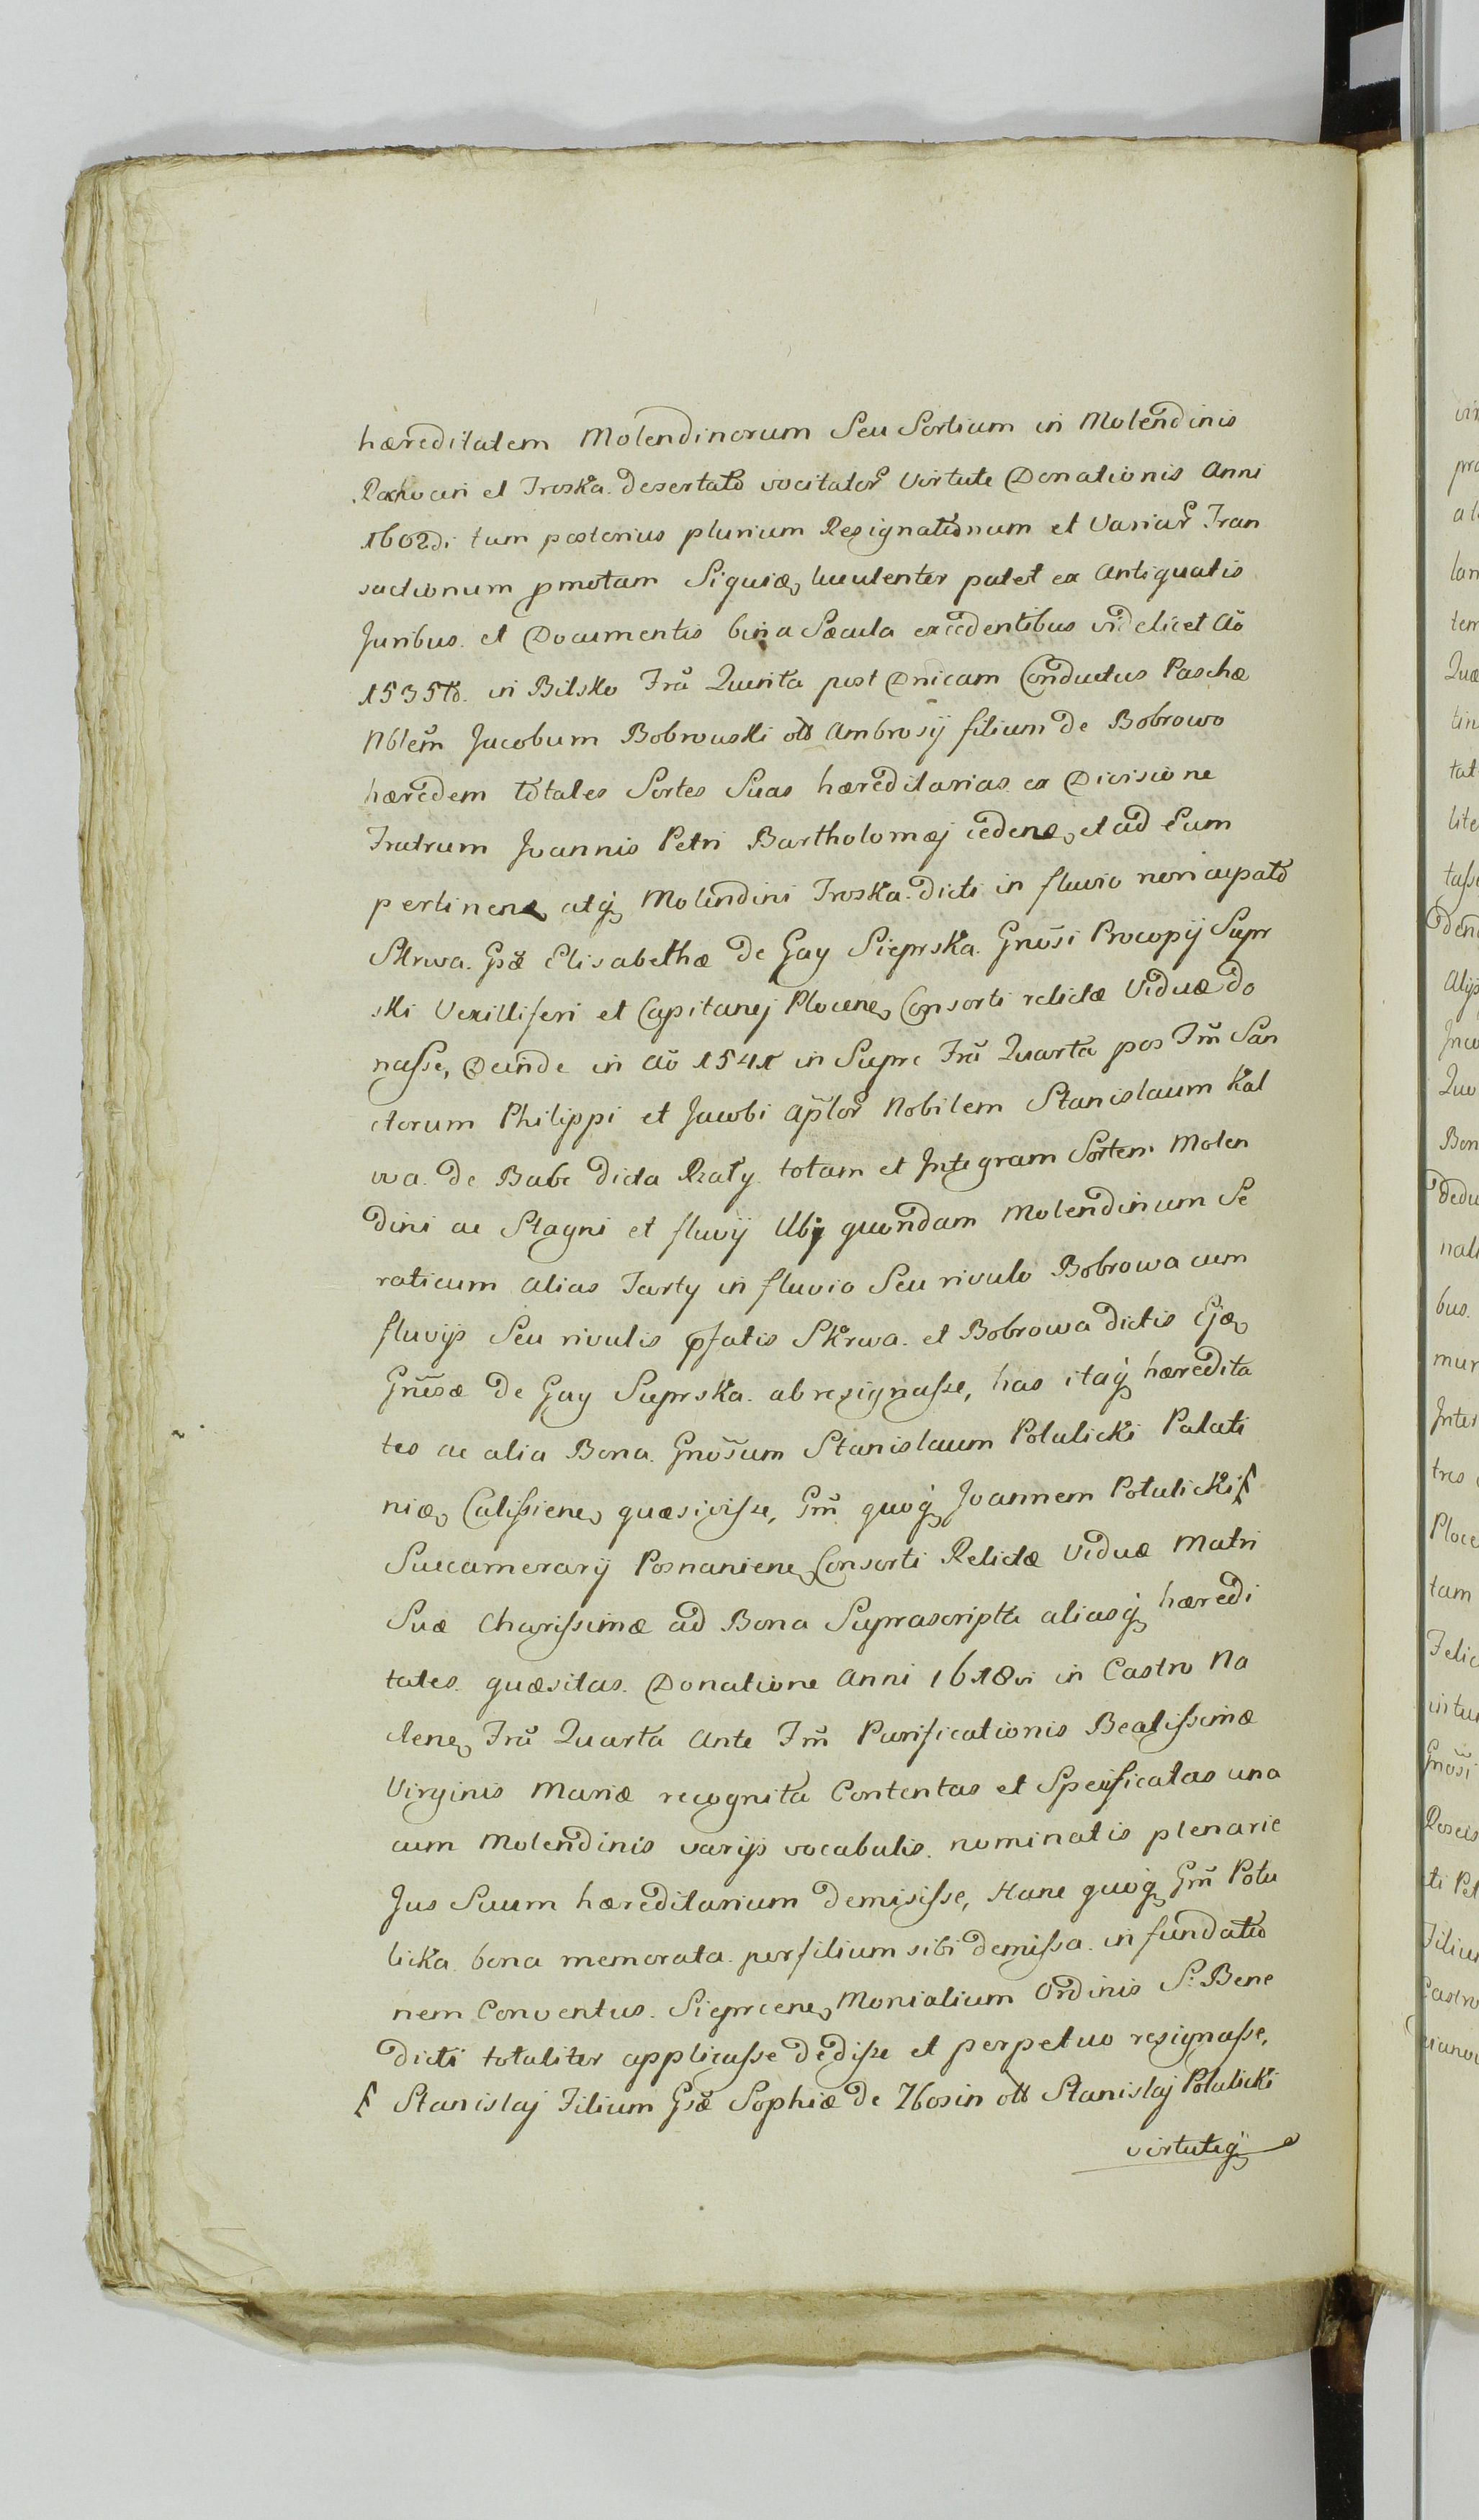 hæreditatem Molendinorum Seu Sortium in Molendinis
et Troska desertato vocitator Virtute Donationis Anni
1602di tum posterius plurium Resignationum et Variar Tran
sactionum pmotam Siquidẽ luculenter patet ex Antiquatis
Juribus et Documentis bina Sæcula excedentibus videlicet Aõ
1535to. in Bilsko Frã Quinta post Dnicam Conductus Paschæ
Nblem̃ Jacobum Bobrowski olt Ambrosÿ filium de Bobrowo
hæredem totales Sortes Suas hæreditarias ex Divisione
Fratrum Joannis Petri Bartholomæj cedenẽ et ad Eum
pertinenẽ atq̃ Molendini Troska dicti in fluvio noncupato
Skrwa. Gsæ̃ Elisabethæ de Gay Sieprska. Gnosĩ Procopÿ Siepr
ski Vexilliferi et Capitanej Plocenẽ Consorti relictæ Viduæ Do
naſse, Deinde in Aõ 1541 in Siepre Frã Quarta pos Fm̃ San
ctorum Philippi et Jacobi Apl̃or Nobilem Stanislaum Kal
wa. de Babe dicta Rzaty totam et Integram Sortem Molen
dini ac Stagni et fluvÿ Ubj quondam Molendinum Se
raticum alias Tarty in fluvio Seu rivulo Bobrowa cum
fluvÿs Seu rivulis p̃fatis Skrwa. et Bobrowa dictis Ejdẽ
Gnesæ̃ de Gay Sieprska. abresignaſse, has itaq̃ hæredita
tes ac alia Bona. Gnosũm Stanislaum Potulicki Palati
nidẽ Caliſsienẽ quæsiviſse, Gm̃ quoq̃ Joannem Potulicki ſ
Succamerarÿ Posnanienẽ Consorti Relictæ Viduæ Matri
Suæ Chariſsimæ ad Bona Suprascripta aliasq̃ hæredi
tates quæsitas. Donatione Anni 1618vi in Castro Na
clenẽ Frã Quarta Ante Fm̃ Purificationis Beatiſsimæ
Virginis Mariæ recognita Contentas et Specificatas una
cum Molendinis varÿs vocabulis nominatis plenarie
Jus Suum hæreditarium demisiſse, Hanc quoq̃ Gm̃ Potu
licka bona memorata per filium sibi demiſsa in fundatio
nem Conventus Sieprcenẽ Monialium Ordinis S: Bene
dicti totaliter applicaſse dediſse et perpetuo resignaſse,
ſ Stanislaj Filium Gsæ̃ Sophiæ de Zbosin olt Stanislaj Potulicki
virtuteq̃